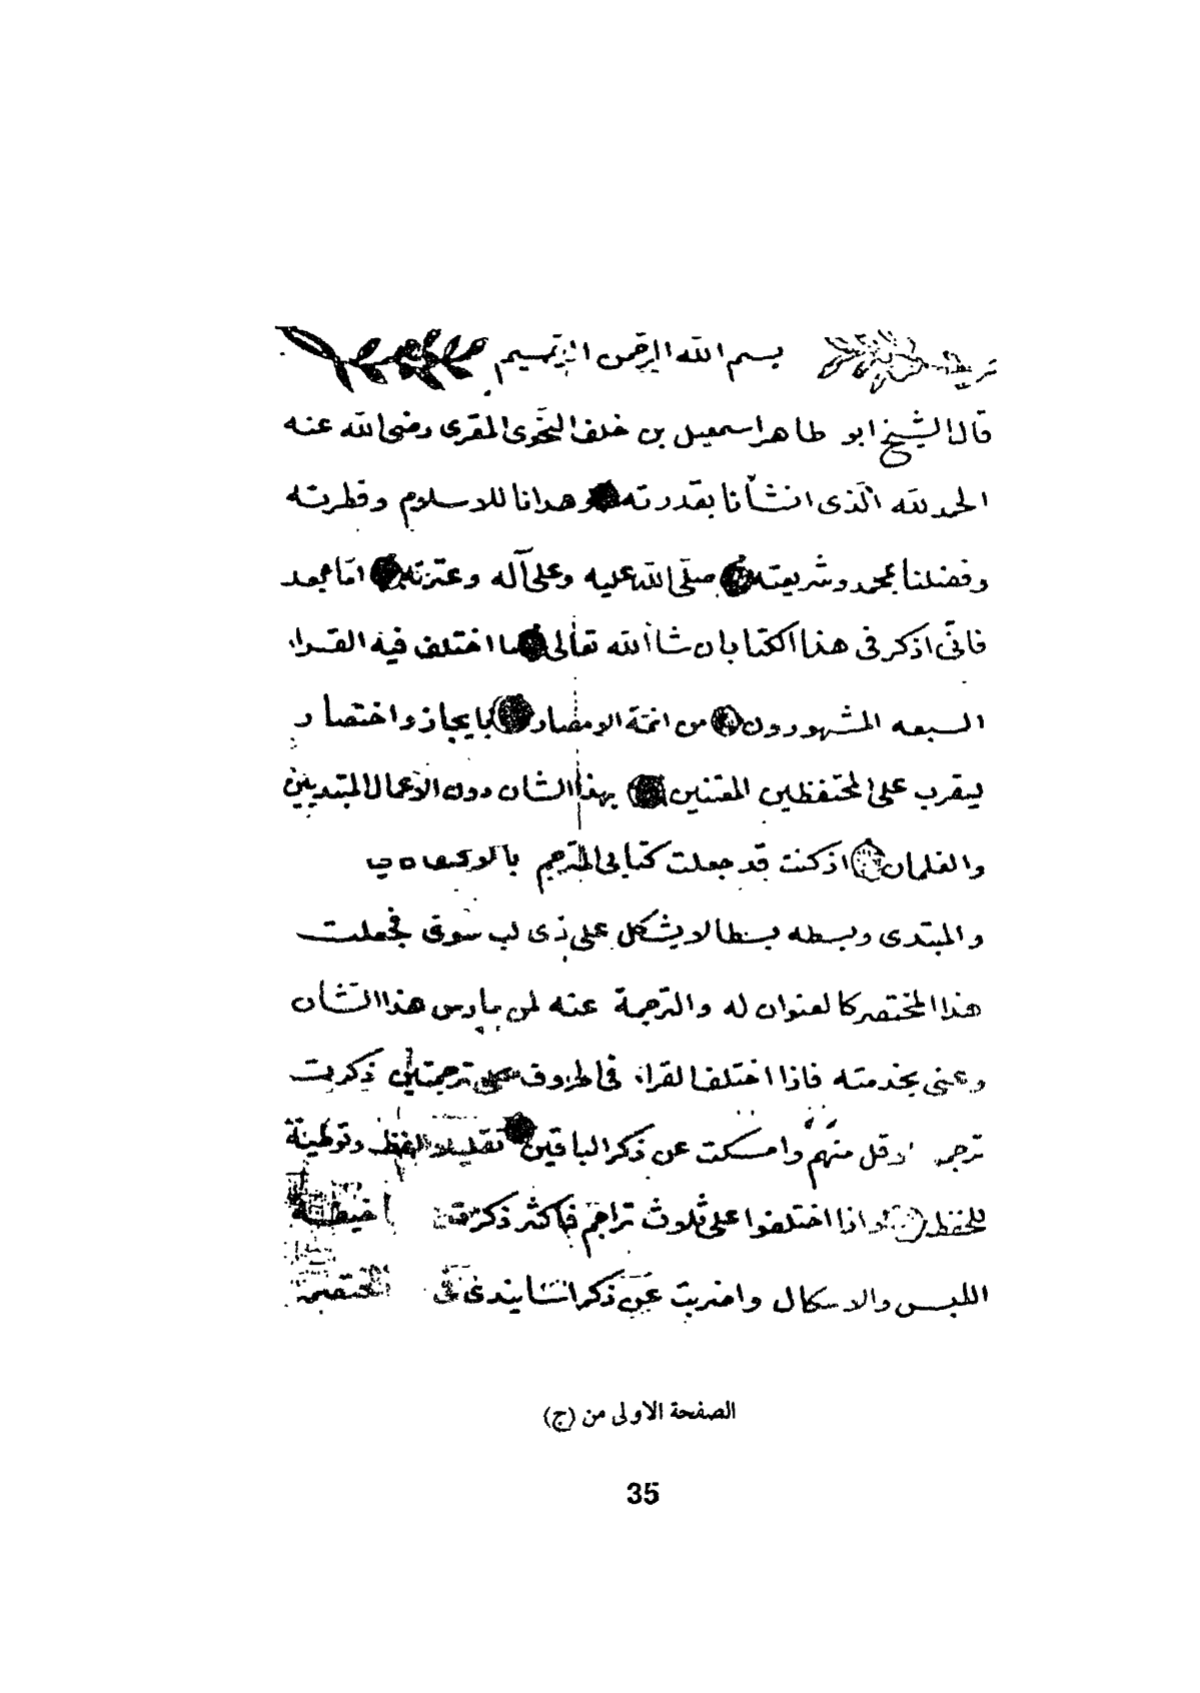 بسم الله الرحمن الرحيم
قال الشيخ ابو طاهر اسمعيل بن خلف النحوى المقرى رضى الله عنه
الحمد لله الذى انشأنا بقدرته وهدانا للاسلام وفطرته
وفضلنا بمحمد وشريعته صلى الله عليه وعلى آله وعترته امّا بعد
فانّى اذكر فى هذا الكتاب ان شاء الله تعالى ما اختلف فيه القراء
السبعه المشهورون من ائمة الامصار بايجاز واختصار
ليقرب على المحتفظين المقتنين بهذا الشان دون الاغمال المبتديين
والغلمان اذ كنت قد جعلت كتابى المترجم بالاكتفا
والمبتدى وبسطه بسطا لا يشكل على ذى لب سوى فجعلت
هذا المختصر كالعنوان له والترجمة عنه لمن مارس هذا الشان
وعنى بخدمته فاذا اختلف القراء فى الحروف على ترجمتين ذكرت
ترجمة الاقل منهم وامسكت عن ذكر الباقين تقليلا للفظ وتوطئة
للحفظ واذا اختلفوا على ثلاث تراجم فاكثر ذكرت خيفة
اللبس والاشكال واضربت عن ذكر اسانيدى فى المختصر
الصفحة الاولى من (ج)
35